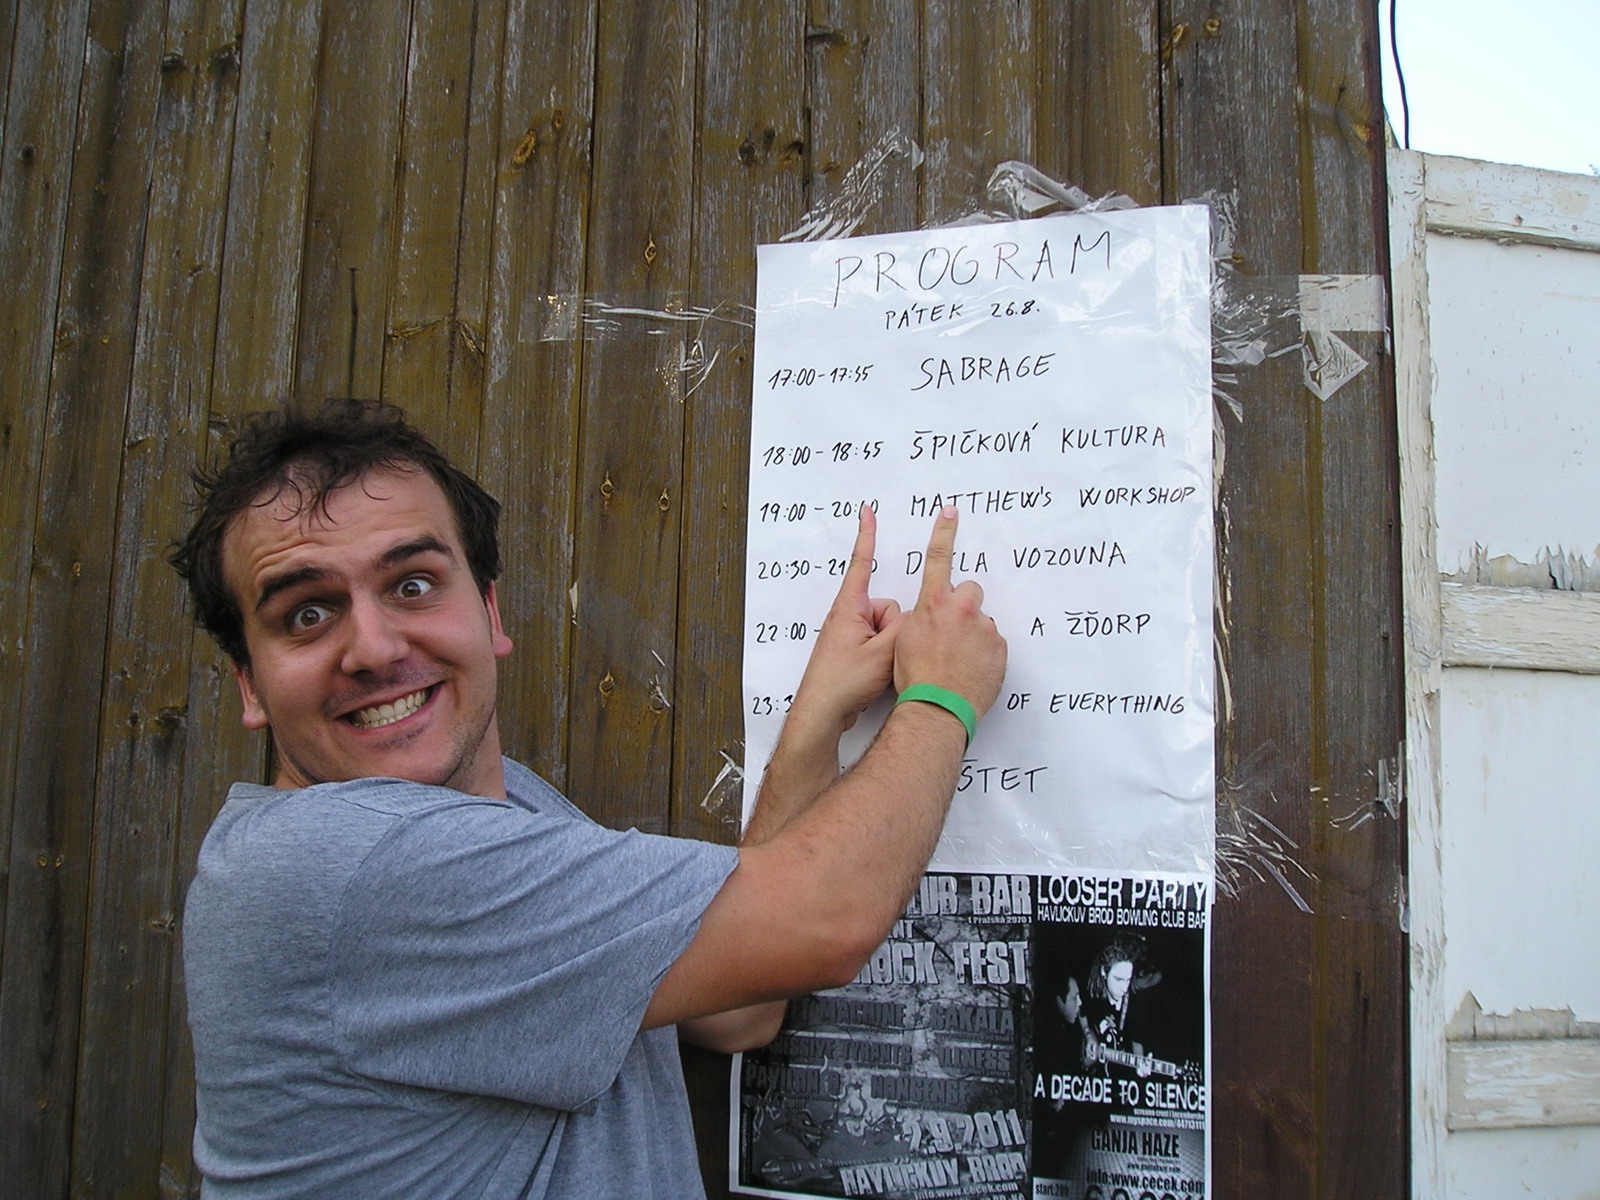 PROGRAM
PÁTEK 26.8.
17:00-17:45 SABRAGE
18:00-18:45 ŠPIČKOVÁ KULTURA
19:00-20:00 MATTHEW'S WORKSHOP
20:30- VOZOVNA
22:00- A ŽĎORP
OF EVERYTHING
CLUB BAR
ROCK FEST
SAKALA
ILLNESS
2.9.2011
HAVLÍČKUV BROD
info:www.cecek.com
LOOSER PARTY
HAVLICKUV BROD BOWLING CLUB BAR
A DECADE TO SILENCE
GANJA HAZE
info:www.cecek.com